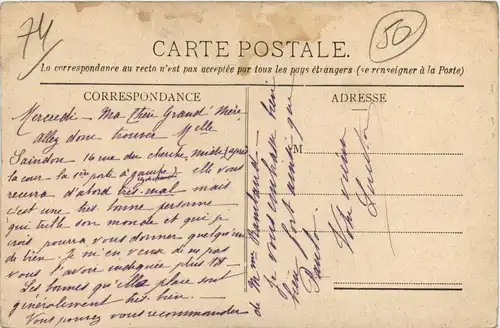 74
50
CARTE POSTALE.
La correspondance au recto n'est pas acceptée par tous les pays étrangers (se renseigner à la Poste)
CORRESPONDANCE
ADRESSE
M
Mercredi - Ma chère Grand'Mère
Allez donc trouver Melle
Saindon 16 rue du cherche midi (après
la cour la 1ère porte à gauche) elle vous
recevra d'abord très mal mais
c'est une très bonne personne
qui traite son monde et qui je
crois pourra vous donner quelqu'un
de bien. Je m'en veux de ne pas
vous l'avoir indiquée plus tôt
Les bonnes qu'elle place sont
généralement très bien.
Vous pouvez vous recommander
de Mme
je vous embrasse bien
fort ainsi que